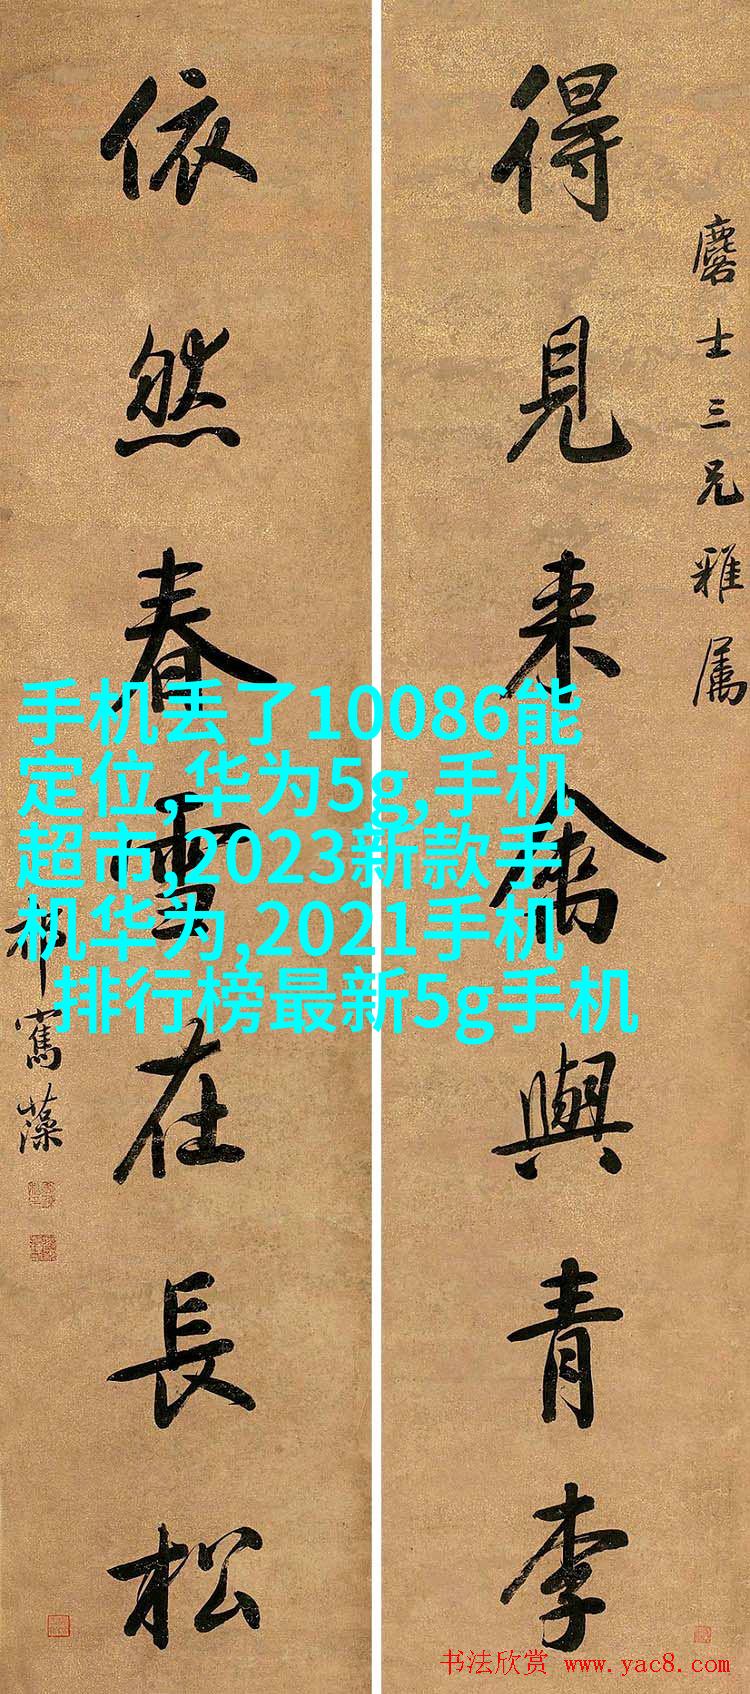 麐士三兄雅属
得見来禽與青李
依然春雪在長松
祁寯藻
手机丢了10086能
定位,华为5g,手机
超市,2023新款手
机华为,2021手机
排行榜最新5g手机
书法欣赏 www.yac8.com